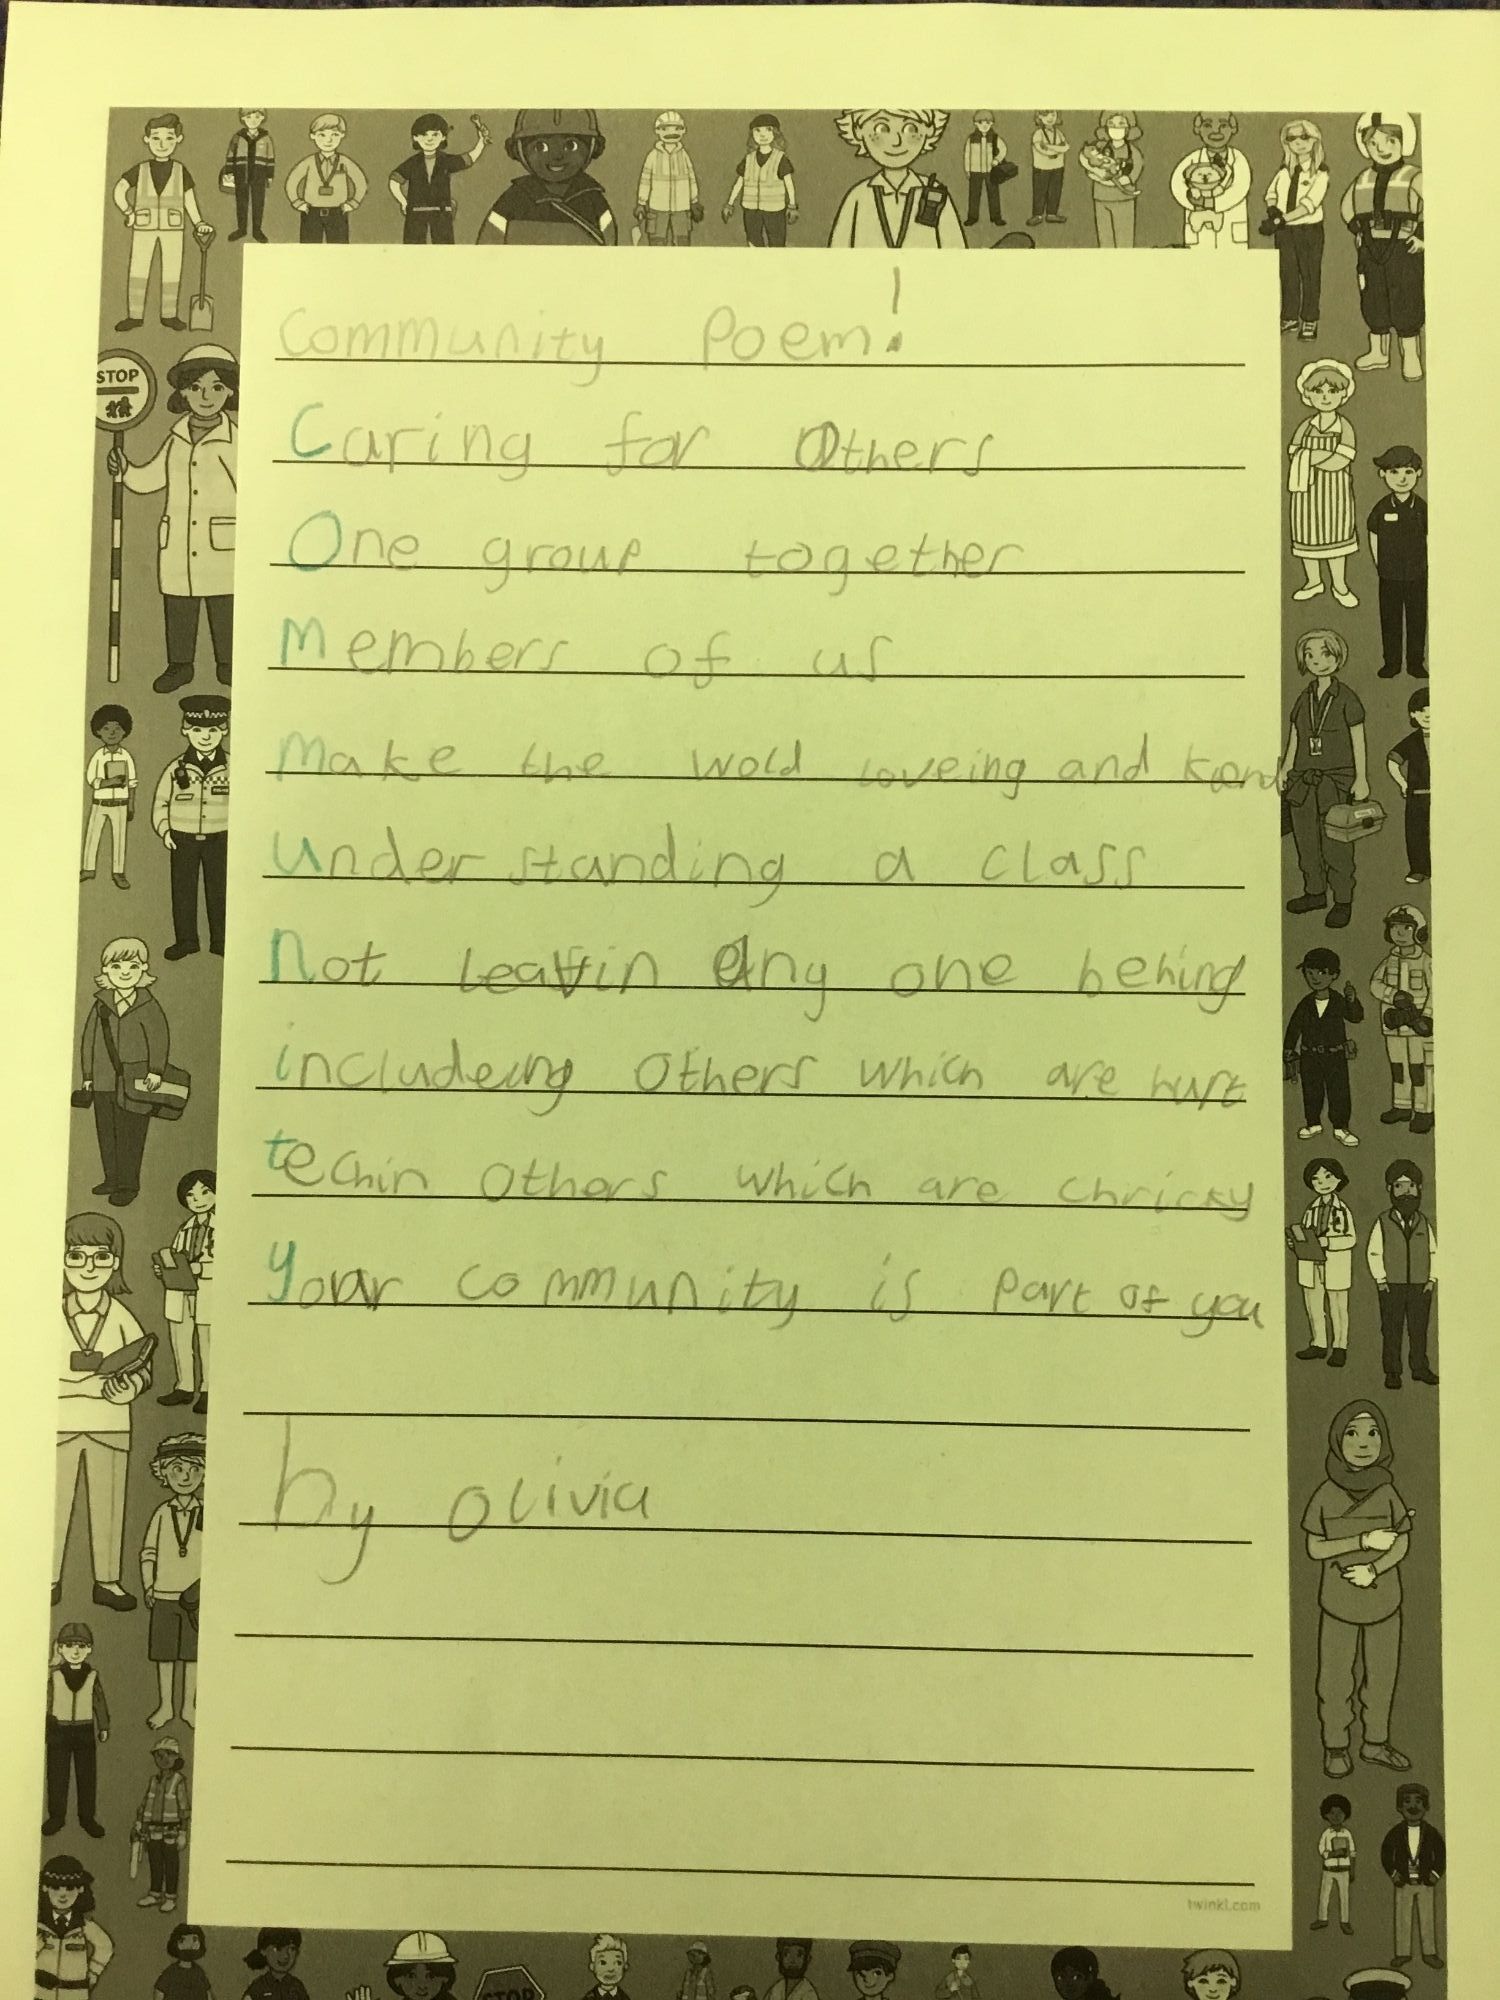 STOP
Community Poem!
Caring for Others
One group together
Members of us
Make the wold loveing and kand
Understanding a class
Not leavin any one behind
includeing others which are hurt
techin others which are
your community is part of you
by olivia
twinkl.com
STOP